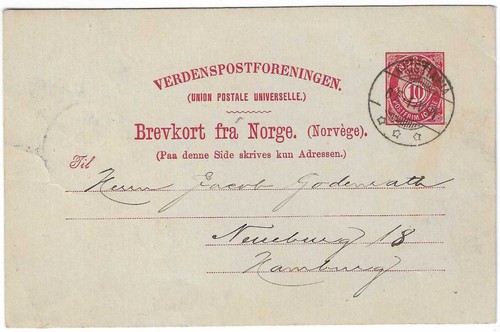 VERDENSPOSTFORENINGEN.
(UNION POSTALE UNIVERSELLE.)
Brevkort fra Norge. (Norvège).
(Paa denne Side skrives kun Adressen.)
Til
Herrn Jacob Godenrath
Neueburg 18
Hamburg
10